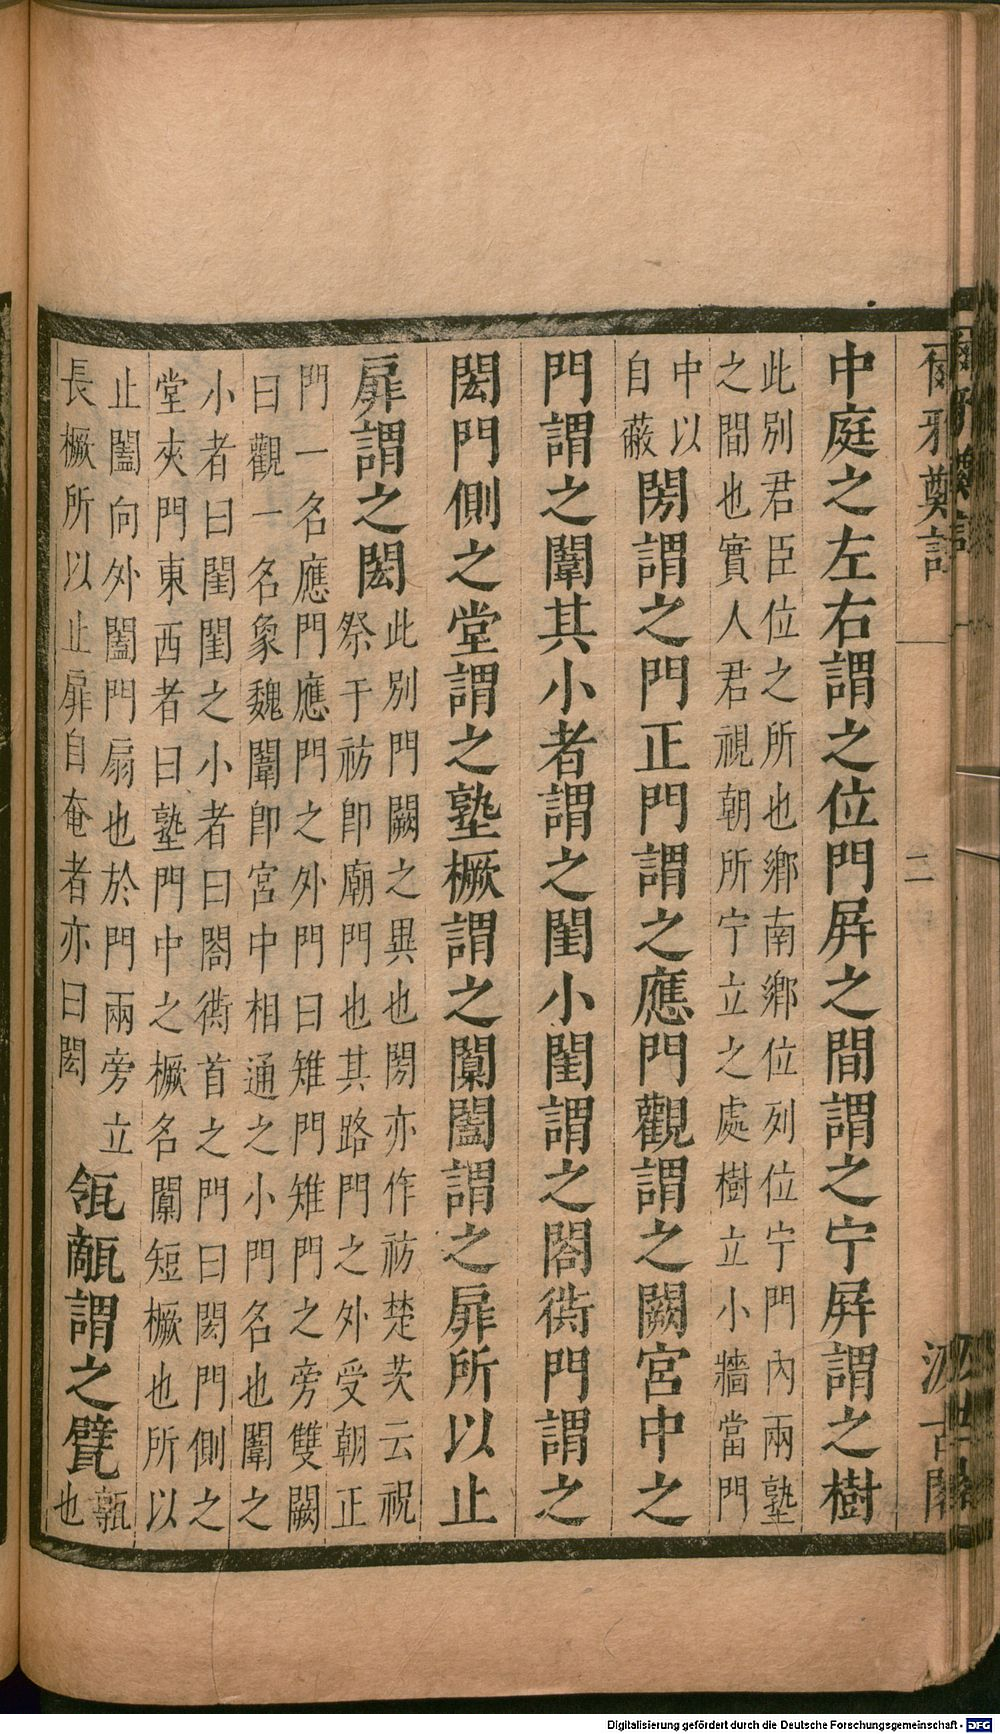 爾雅奠言
二
汲古閣
中庭之左右謂之位門屏之間謂之宁屏謂之樹
此別君臣位之所也鄉南鄉位列位宁門內兩塾
之間也實人君視朝所宁立之處樹立小牆當門
中以
自蔽
閍謂之門正門謂之應門觀謂之闕宮中之
門謂之闈其小者謂之閨小閨謂之閤衖門謂之
閎門側之堂謂之塾橛謂之闑闔謂之扉所以止
扉謂之閎
此別門闕之異也閍亦作祊楚茨云祝
祭于祊卽廟門也其路門之外受朝正
門一名應門應門之外門曰雉門雉門之旁雙闕
曰觀一名象魏闈卽宮中相通之小門名也闈之
小者曰閨閨之小者曰閤衖首之門曰閎門側之
堂夾門東西者曰塾門中之橛名闑短橛也所以
止闔向外闔門扇也於門兩旁立
長橛所以止扉自奄者亦曰閎
瓴甋謂之甓
瓻
也
Digitalisierung gefördert durch die Deutsche Forschungsgemeinschaft - DFG